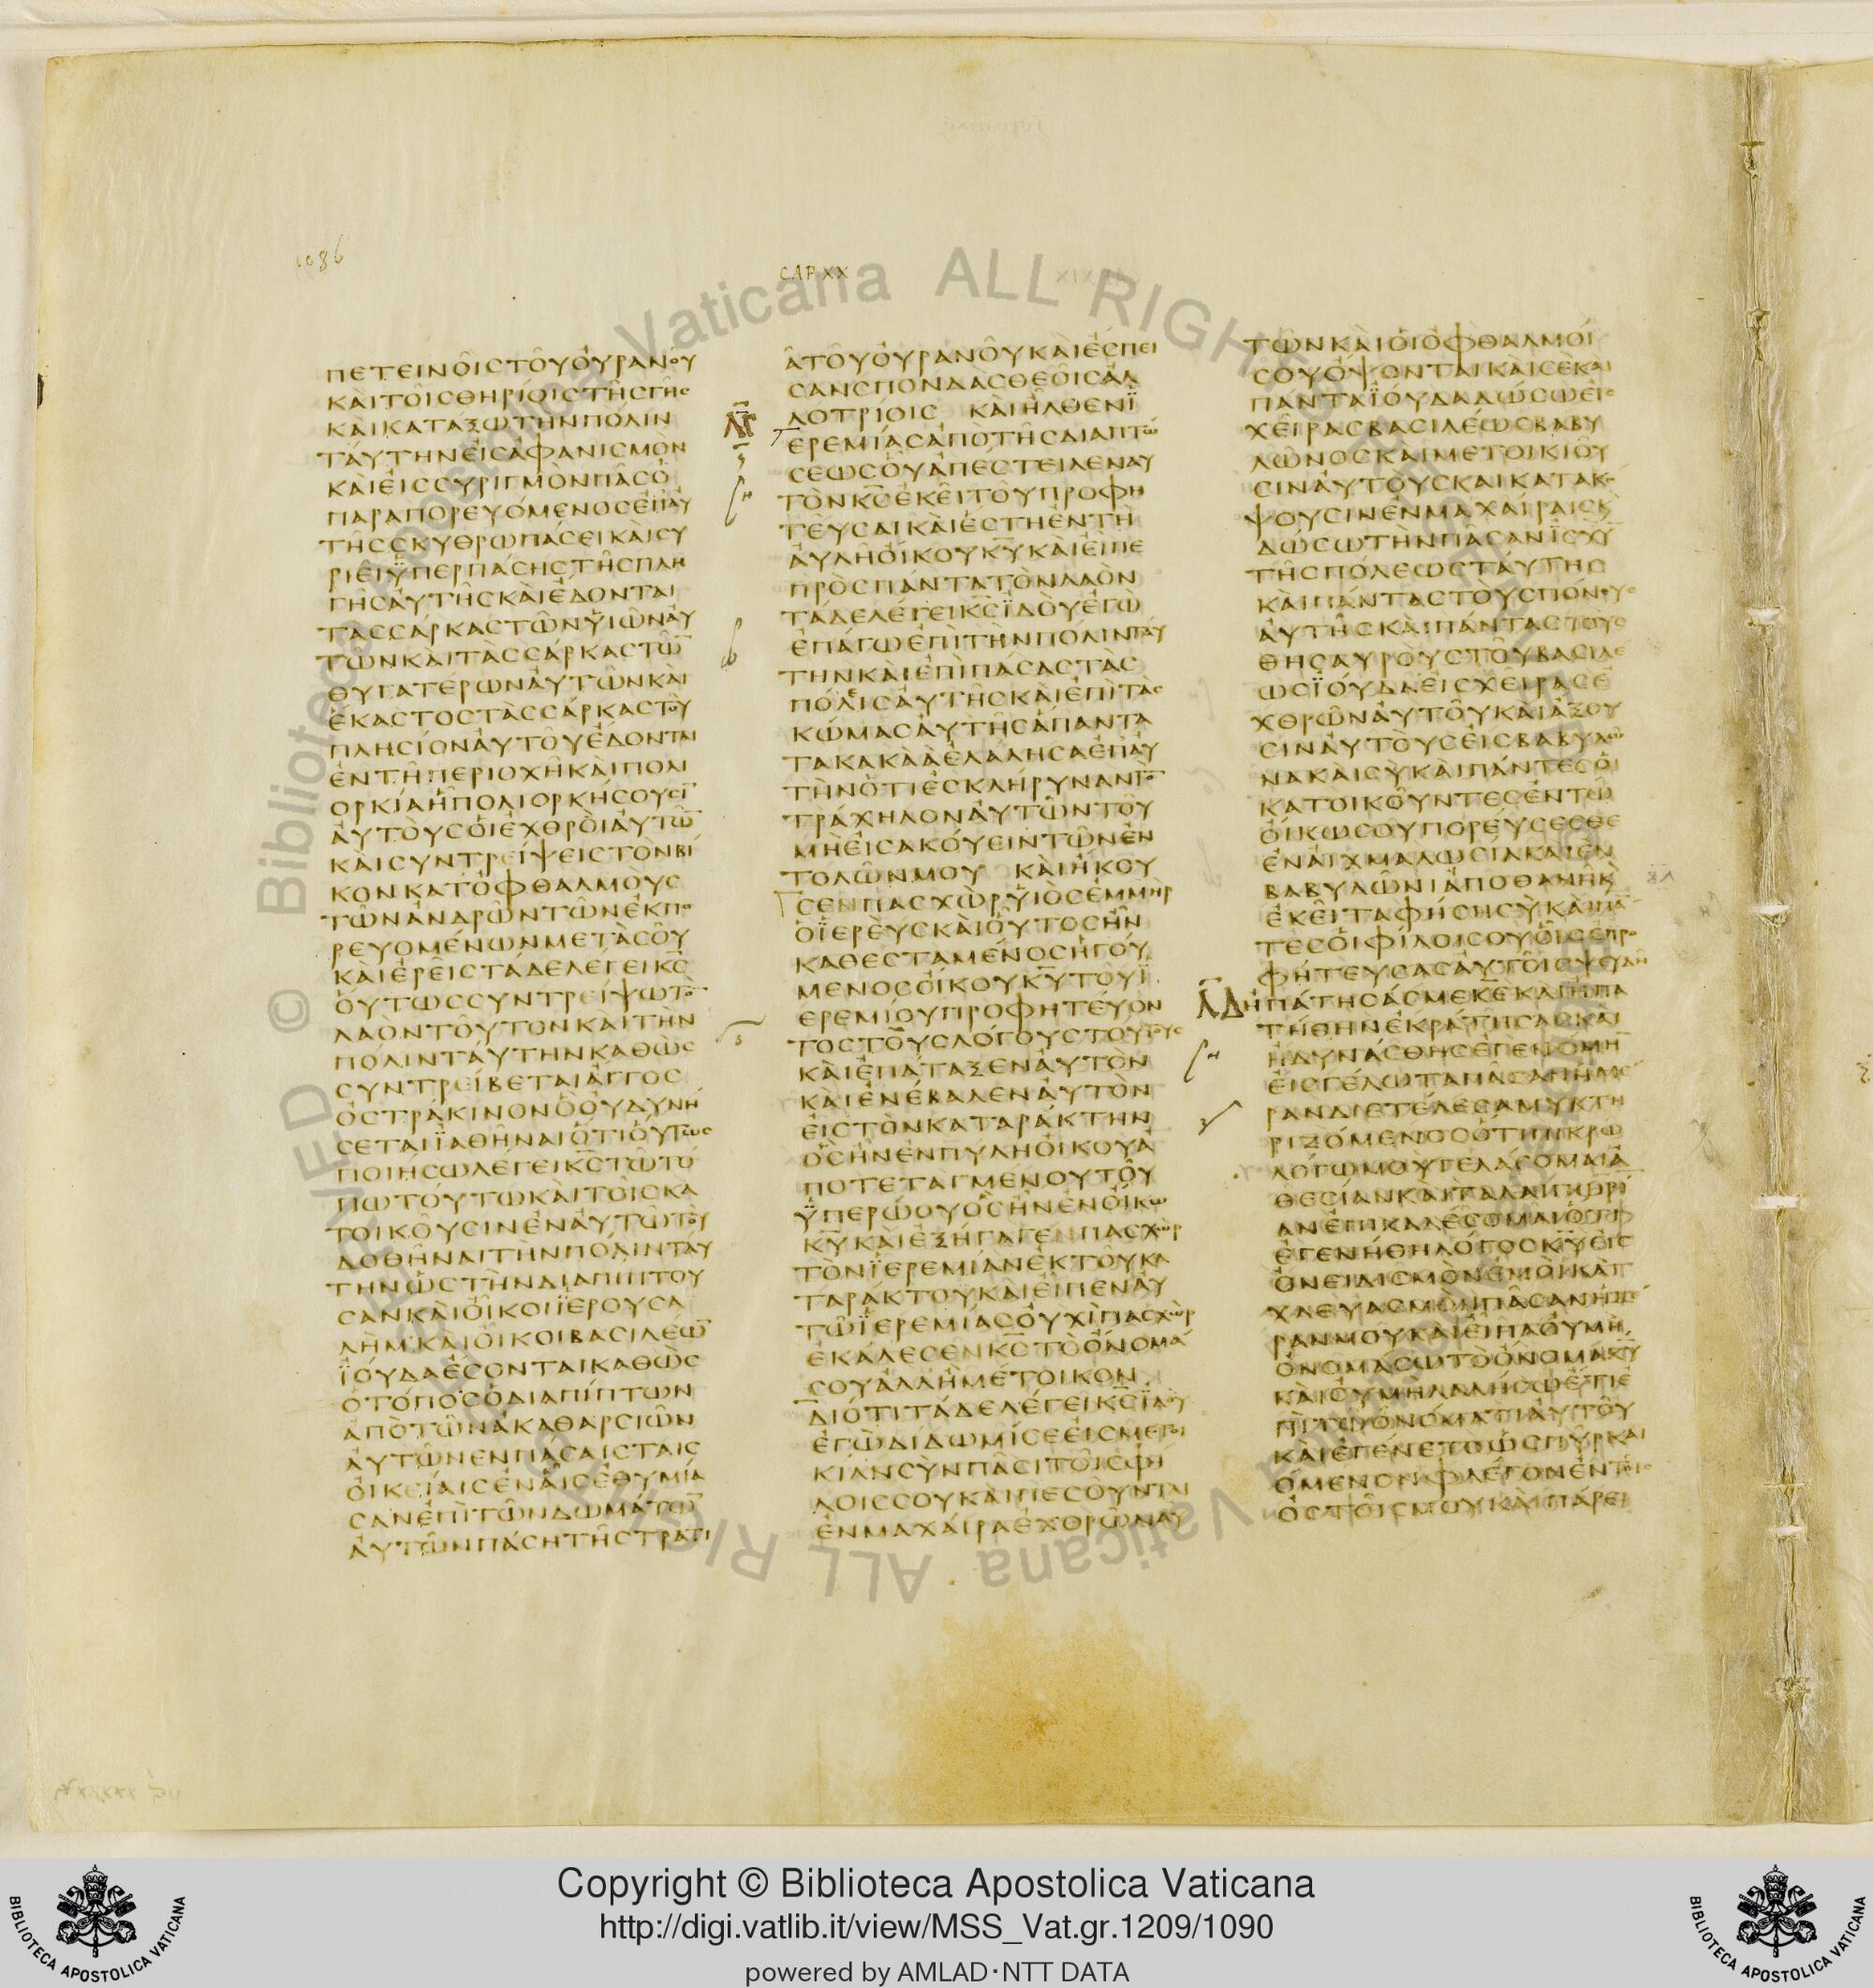 1086
CAP XX
ΠΕΤΕΙΝΟΙϹΤΟΥΟΥΡΑΝΟΥ
ΚΑΙΤΟΙϹΘΗΡΙΟΙϹΤΗϹΓΗϹ
ΚΑΙΚΑΤΑΞΩΤΗΝΠΟΛΙΝ
ΤΑΥΤΗΝΕΙϹΑΦΑΝΙϹΜΟΝ
ΚΑΙΕΙϹϹΥΡΙΓΜΟΝΠΑϹΟ
ΠΑΡΑΠΟΡΕΥΟΜΕΝΟϹΕΠΑΥ
ΤΗϹϹΚΥΘΡΩΠΑϹΕΙΚΑΙϹΥ
ΡΙΕΙΫΠΕΡΠΑϹΗϹΤΗϹΠΛΗ
ΓΗϹΑΥΤΗϹΚΑΙΕΔΟΝΤΑΙ
ΤΑϹϹΑΡΚΑϹΤΩΝΫΙΩΝΑΥ
ΤΩΝΚΑΙΤΑϹϹΑΡΚΑϹΤΩ̅
ΘΥΓΑΤΕΡΩΝΑΥΤΩΝΚΑΙ
ΕΚΑϹΤΟϹΤΑϹϹΑΡΚΑϹΤΟΥ
ΠΛΗϹΙΟΝΑΥΤΟΥΕΔΟΝΤΑΙ
ΕΝΤΗΠΕΡΙΟΧΗΚΑΙΠΟΛΙ
ΟΡΚΙΑΗΠΟΛΙΟΡΚΗϹΟΥϹΙ̅
ΑΥΤΟΥϹΟΙΕΧΘΡΟΙΑΥΤΩ̅
ΚΑΙϹΥΝΤΡΕΙΨΕΙϹΤΟΝΒΙ
ΚΟΝΚΑΤΟΦΘΑΛΜΟΥϹ
ΤΩΝΑΝΔΡΩΝΤΩΝΕΚΠΟ
ΡΕΥΟΜΕΝΩΝΜΕΤΑϹΟΥ
ΚΑΙΕΡΕΙϹΤΑΔΕΛΕΓΕΙΚ̅Ϲ̅
ΟΥΤΩϹϹΥΝΤΡΕΙΨΩΤΟ̅
ΛΑΟΝΤΟΥΤΟΝΚΑΙΤΗΝ
ΠΟΛΙΝΤΑΥΤΗΝΚΑΘΩϹ
ϹΥΝΤΡΕΙΒΕΤΑΙΑΓΓΟϹ
ΟϹΤΡΑΚΙΝΟΝΟΟΥΔΥΝΗ
ϹΕΤΑΙΪΑΘΗΝΑΙΟΤΙΟΥΤΩϹ
ΠΟΙΗϹΩΛΕΓΕΙΚ̅Ϲ̅ΤΩΤΟ
ΠΩΤΟΥΤΩΚΑΙΤΟΙϹΚΑ
ΤΟΙΚΟΥϹΙΝΕΝΑΥΤΩΤΟΥ
ΔΟΘΗΝΑΙΤΗΝΠΟΛΙΝΤΑΥ
ΤΗΝΩϹΤΗΝΔΙΑΠΙΠΤΟΥ
ϹΑΝΚΑΙΟΙΚΟΙΪΕΡΟΥϹΑ
ΛΗΜΚΑΙΟΙΚΟΙΒΑϹΙΛΕΩ̅
ΪΟΥΔΑΕϹΟΝΤΑΙΚΑΘΩϹ
ΟΤΟΠΟϹΟΔΙΑΠΙΠΤΩΝ
ΑΠΟΤΩΝΑΚΑΘΑΡϹΙΩΝ
ΑΥΤΩΝΕΝΠΑϹΑΙϹΤΑΙϹ
ΟΙΚΕΙΑΙϹΕΝΑΙϹΕΘΥΜΙΑ
ϹΑΝΕΠΙΤΩΝΔΩΜΑΤΩ̅
ΑΥΤΩΝΠΑϹΗΤΗϹΤΡΑΤΙ
ΑΤΟΥΟΥΡΑΝΟΥΚΑΙΕϹΠΕΙ
ϹΑΝϹΠΟΝΔΑϹΘΕΟΙϹΑΛ
ΛΟΤΡΙΟΙϹ ΚΑΙΗΛΘΕΝΪ
ΕΡΕΜΙΑϹΑΠΟΤΗϹΔΙΑΠΤΩ
ϹΕΩϹΟΥΑΠΕϹΤΕΙΛΕΝΑΥ
ΤΟΝΚ̅Ϲ̅ΕΚΕΙΤΟΥΠΡΟΦΗ
ΤΕΥϹΑΙΚΑΙΕϹΤΗΕΝΤΗ
ΑΥΛΗΟΙΚΟΥΚ̅Υ̅ΚΑΙΕΙΠΕ
ΠΡΟϹΠΑΝΤΑΤΟΝΛΑΟΝ
ΤΑΔΕΛΕΓΕΙΚ̅Ϲ̅ΪΔΟΥΕΓΩ
ΕΠΑΓΩΕΠΙΤΗΝΠΟΛΙΝΤΑΥ
ΤΗΝΚΑΙΕΠΙΠΑϹΑϹΤΑϹ
ΠΟΛΙϹΑΥΤΗϹΚΑΙΕΠΙΤΑϹ
ΚΩΜΑϹΑΥΤΗϹΑΠΑΝΤΑ
ΤΑΚΑΚΑΑΕΛΑΛΗϹΑΕΠΑΥ
ΤΗΝΟΤΙΕϹΚΛΗΡΥΝΑΝΤΟ̅
ΤΡΑΧΗΛΟΝΑΥΤΩΝΤΟΥ
ΜΗΕΙϹΑΚΟΥΕΙΝΤΩΝΕΝ
ΤΟΛΩΝΜΟΥ ΚΑΙΗΚΟΥ
ϹΕΝΠΑϹΧΩΡΫΙΟϹΕΜΜΗΡ
ΟΪΕΡΕΥϹΚΑΙΟΥΤΟϹΗΝ
ΚΑΘΕϹΤΑΜΕΝΟϹΗΓΟΥ
ΜΕΝΟϹΟΙΚΟΥΚ̅Υ̅ΤΟΥΪ
ΕΡΕΜΙΟΥΠΡΟΦΗΤΕΥΟΝ
ΤΟϹΤΟΥϹΛΟΓΟΥϹΤΟΥΤΟΥϹ
ΚΑΙΕΠΑΤΑΞΕΝΑΥΤΟΝ
ΚΑΙΕΝΕΒΑΛΕΝΑΥΤΟΝ
ΕΙϹΤΟΝΚΑΤΑΡΑΚΤΗΝ
ΟϹΗΝΕΝΠΥΛΗΟΙΚΟΥΑ
ΠΟΤΕΤΑΓΜΕΝΟΥΤΟΥ
ΫΠΕΡΩΟΥΟϹΗΝΕΝΟΙΚΩ
Κ̅Υ̅ΚΑΙΕΞΗΓΑΓΕΝΠΑϹΧΩΡ
ΤΟΝΪΕΡΕΜΙΑΝΕΚΤΟΥΚΑ
ΤΑΡΑΚΤΟΥΚΑΙΕΙΠΕΝΑΥ
ΤΩΪΕΡΕΜΙΑϹΟΥΧΙΠΑϹΧΩΡ
ΕΚΑΛΕϹΕΝΚ̅Ϲ̅ΤΟΟΝΟΜΑ
ϹΟΥΑΛΛΗΜΕΤΟΙΚΟΝ
ΔΙΟΤΙΤΑΔΕΛΕΓΕΙΚ̅Ϲ̅ΪΔΟΥ
ΕΓΩΔΙΔΩΜΙϹΕΕΙϹΜΕΤΟΙ
ΚΙΑΝϹΥΝΠΑϹΙΤΟΙϹΦΙ
ΛΟΙϹϹΟΥΚΑΙΠΕϹΟΥΝΤΑΙ
ΕΝΜΑΧΑΙΡΑΕΧΘΡΩΝΑΥ
ΤΩΝΚΑΙΟΙΟΦΘΑΛΜΟΙ
ϹΟΥΟΨΟΝΤΑΙΚΑΙϹΕΚΑΙ
ΠΑΝΤΑΪΟΥΔΑΔΩϹΩΕΙϹ
ΧΕΙΡΑϹΒΑϹΙΛΕΩϹΒΑΒΥ
ΛΩΝΟϹΚΑΙΜΕΤΟΙΚΙΟΥ
ϹΙΝΑΥΤΟΥϹΚΑΙΚΑΤΑΚΟ
ΨΟΥϹΙΝΕΝΜΑΧΑΙΡΑΙϹΚ
ΔΩϹΩΤΗΝΠΑϹΑΝΪϹΧΥ̅
ΤΗϹΠΟΛΕΩϹΤΑΥΤΗϹ
ΚΑΙΠΑΝΤΑϹΤΟΥϹΠΟΝΟΥϹ
ΑΥΤΗϹΚΑΙΠΑΝΤΑϹΤΟΥϹ
ΘΗϹΑΥΡΟΥϹΤΟΥΒΑϹΙΛΕ
ΩϹΪΟΥΔΑΕΙϹΧΕΙΡΑϹΕ
ΧΘΡΩΝΑΥΤΟΥΚΑΙΑΞΟΥ
ϹΙΝΑΥΤΟΥϹΕΙϹΒΑΒΥΛΩ
ΝΑΚΑΙϹΥΚΑΙΠΑΝΤΕϹΟΙ
ΚΑΤΟΙΚΟΥΝΤΕϹΕΝΤΩ
ΟΙΚΩϹΟΥΠΟΡΕΥϹΕϹΘΕ
ΕΝΑΙΧΜΑΛΩϹΙΑΚΑΙΕΝ
ΒΑΒΥΛΩΝΙΑΠΟΘΑΝΗΚ
ΕΚΕΙΤΑΦΗϹΗϹΥΚΑΙΠΑ̅
ΤΕϹΟΙΦΙΛΟΙϹΟΥΟΙϹΕΠΡΟ
ΦΗΤΕΥϹΑϹΑΥΤΟΙϹΨΕΥΔΗ
ΗΠΑΤΗϹΑϹΜΕΚ̅Ε̅ΚΑΙΗΠΑ
ΤΗΘΗΝΕΚΡΑΤΗϹΑϹΚΑΙ
ΗΔΥΝΑϹΘΗϹΕΓΕΝΟΜΗ̅
ΕΙϹΓΕΛΩΤΑΠΑϹΑΝΗΜΕ
ΡΑΝΔΙΕΤΕΛΕϹΑΜΥΚΤΗ
ΡΙΖΟΜΕΝΟϹΟΤΙΠΙΚΡΩ
ΛΟΓΩΜΟΥΓΕΛΑϹΟΜΑΙΑ
ΘΕϹΙΑΝΚΑΙΤΑΛΑΙΠΩΡΙ
ΑΝΕΠΙΚΑΛΕϹΟΜΑΙΟΤΙ
ΕΓΕΝΗΘΗΛΟΓΟϹΚ̅Υ̅ΕΙϹ
ΟΝΕΙΔΙϹΜΟΝΕΜΟΙΚΑΙ
ΧΛΕΥΑϹΜΟΝΠΑϹΑΝΗΜΕ
ΡΑΝΜΟΥΚΑΙΕΙΠΑΟΥΜΗ
ΟΝΟΜΑϹΩΤΟΟΝΟΜΑΚ̅Υ̅
ΚΑΙΟΥΜΗΛΑΛΗϹΩΕΤΙΕ
ΠΙΤΩΟΝΟΜΑΤΙΑΥΤΟΥ
ΚΑΙΕΓΕΝΕΤΟΩϹΠΥΡΚΑΙ
ΟΜΕΝΟΝΦΛΕΓΟΝΕΝΤΟΙϹ
ΟϹΤΟΙϹΜΟΥΚΑΙΠΑΡΕΙ
Copyright © Biblioteca Apostolica Vaticana
http://digi.vatlib.it/view/MSS_Vat.gr.1209/1090
powered by AMLAD·NTT DATA
BIBLIOTECA APOSTOLICA VATICANA
BIBLIOTECA APOSTOLICA VATICANA